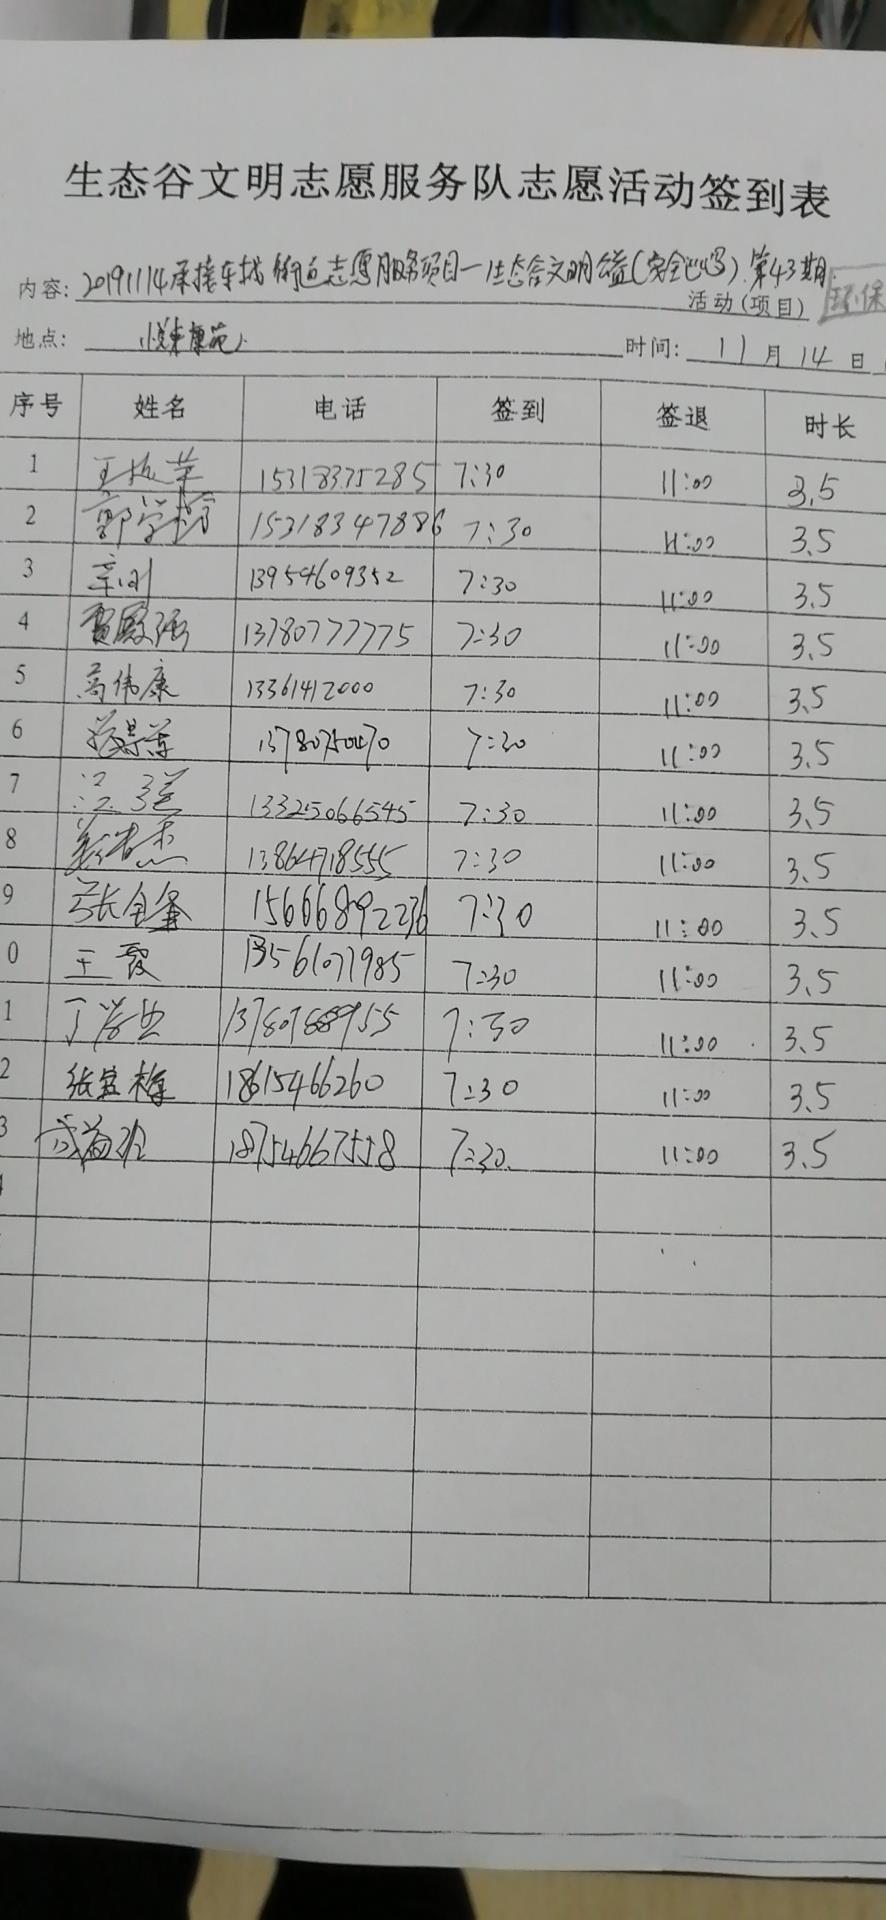 生态谷文明志愿服务队志愿活动签到表
内容: 20191114承接车站街道志愿服务项目一生态谷文明公益(安全)第43期 活动(项目) 环保
地点: 悦来康苑 时间: 11月14日
序号 姓名 电话 签到 签退 时长
1 王振英 15318375285 7:30 11:00 3.5
2 郭学 15318347886 7:30 11:00 3.5
3 辛刚 13954609352 7:30 11:00 3.5
4 贾殿强 13780777775 7:30 11:00 3.5
5 高伟康 13361412000 7:30 11:00 3.5
6 13780750470 7:30 11:00 3.5
7 13325066545 7:30 11:00 3.5
8 13864718555 7:30 11:00 3.5
9 张全 15666892236 7:30 11:00 3.5
0 王霞 13561071985 7:30 11:00 3.5
1 丁 13780768955 7:30 11:00 3.5
2 张宝梅 18615466260 7:30 11:00 3.5
3 18754667558 7:30 11:00 3.5